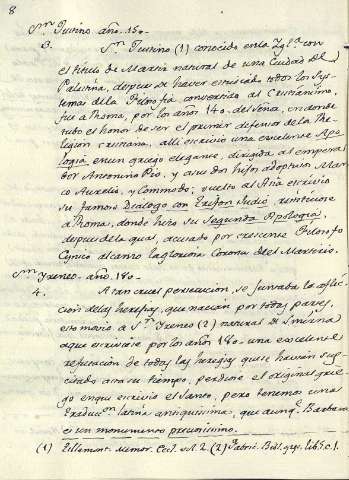 8
Sn. Justino año 150.
3. Sn. Justino (1) conocido en la Ygla. con
el titulo de Martir natural de una Ciudad de
Palestina, depues de haver estudiado todos los Sys-
temas de la Filosofia convertido al Cristianismo,
fue a Roma, por los años 140. del Señor, en donde
tubo el honor de ser el primer defensor de la Re-
ligion cristiana, alli escrivio una excelente Apo-
logia en un griego elegante, dirigida al empera-
dor Antonino Pio, y a sus dos hijos adoptivos Mar-
co Aurelio, y Commodo; vuelto al Asia escrivio
su famoso Dialogo con Trifon Judio, restituiose
a Roma, donde hizo su Segunda Apologia,
depues de la qual, acusado por Crescente Filosofo
Cynico alcanzo la gloriosa Corona del Martirio.
Sn. Yreneo año 180.
4. A tan cruel persecucion, se juntava la aflic-
cion de las heregias, que nacian por todas partes,
esto movio a Sn. Yreneo (2) natural de Smirna
a que escriviese por los años 190. una excelente
refutacion de todas las heregias que se havian sus-
citado asta su tiempo, perdiose el original grie-
go en que escrivio el Santo, pero tenemos una
Traduccn. latina antiquisima, que aunqe. Barbara
es un monumento preciosisimo.
(1) Tillemont. memor. Eccl. t. 2. (2) Fabric. Bibl. grec. lib. 5. c. 1.